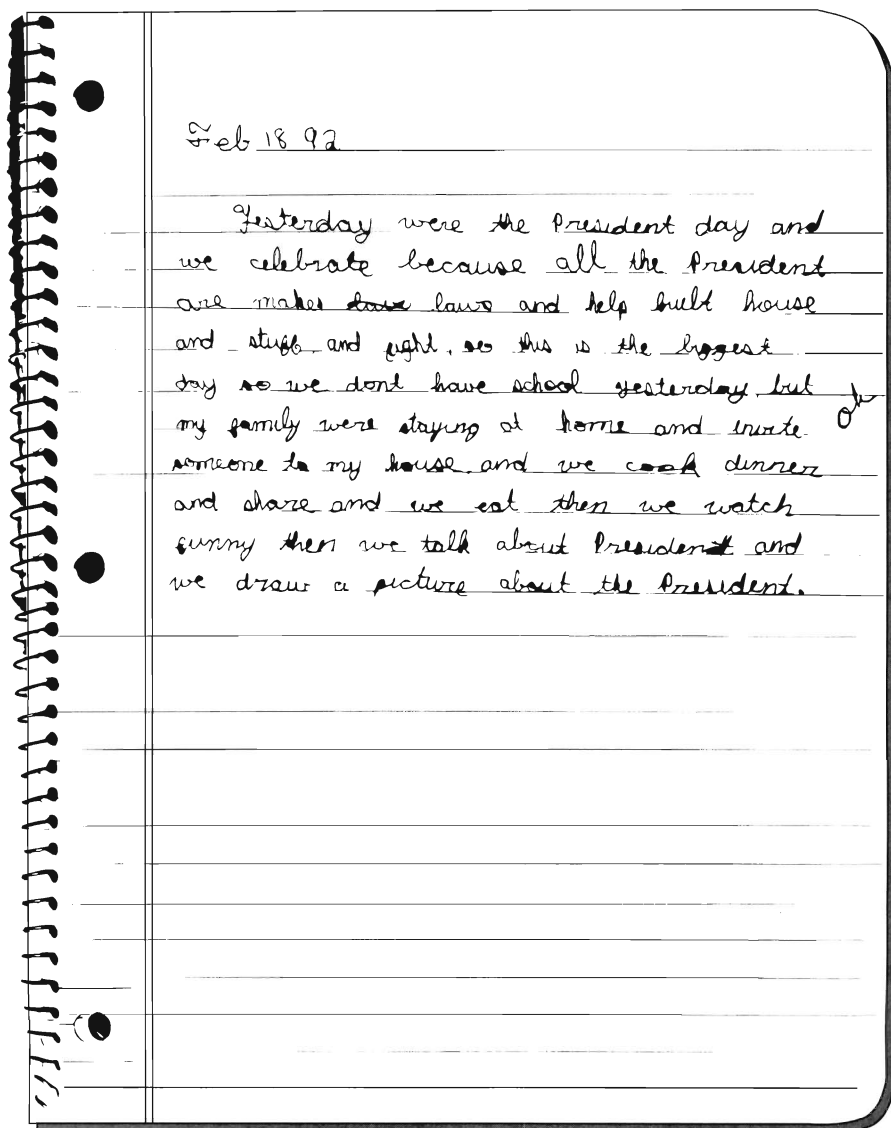 Feb 18 92
Yesterday were the President day and
we celebrate because all the President
are makes laws and help built house
and stuff and fight, so this is the biggest
day so we dont have school yesterday, but
my family were staying at home and invite
someone to my house and we cook dinner
and share and we eat then we watch
funny then we talk about President and
we draw a picture about the President.
Ok